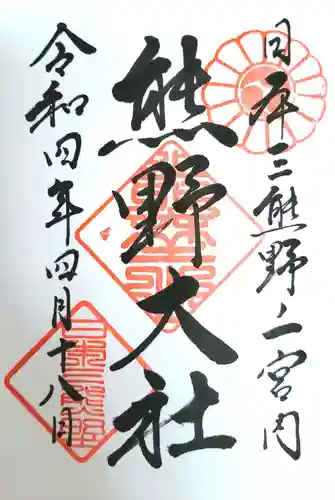 日本三熊野之一宮内
熊野大社
令和四年四月十八日